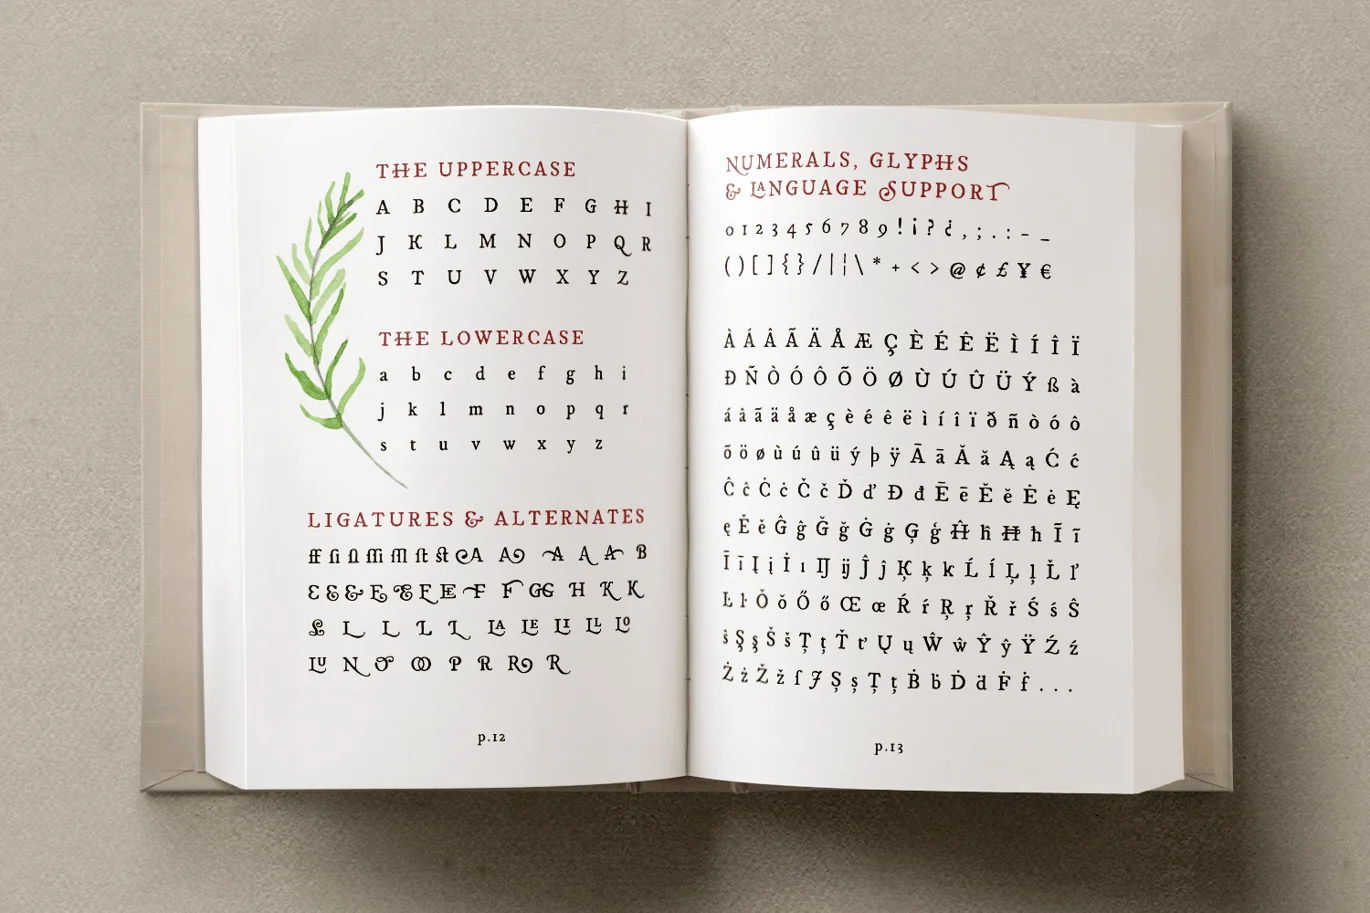 THE UPPERCASE
A B C D E F G H I
J K L M N O P Q R
S T U V W X Y Z
THE LOWERCASE
a b c d e f g h i
j k l m n o p q r
s t u v w x y z
LIGATURES & ALTERNATES
ff fi fl ffi ffl ft st A A A A A B
E & & E E E E F F GG H K K
£ L L L L LA LE LI LL LO
LU N O OO P R R R
p.12
NUMERALS, GLYPHS
& LANGUAGE SUPPORT
0 1 2 3 4 5 6 7 8 9 ! ¡ ? ¿ , ; . : – _
( ) [ ] { } / | ¦ \ * + < > @ ¢ £ ¥ €
À Á Â Ã Ä Å Æ Ç È É Ê Ë Ì Í Î Ï
Ð Ñ Ò Ó Ô Õ Ö Ø Ù Ú Û Ü Ý ß à
á â ã ä å æ ç è é ê ë ì í î ï ð ñ ò ó ô
õ ö ø ù ú û ü ý þ ÿ Ā ā Ă ă Ą ą Ć ć
Ĉ ĉ Ċ ċ Č č Ď ď Đ đ Ē ē Ĕ ĕ Ė ė Ę
ę Ě ě Ĝ ĝ Ğ ğ Ġ ġ Ģ ģ Ĥ ĥ Ħ ħ Ī ī
Ĭ ĭ Į į İ ı Ĳ ĳ Ĵ ĵ Ķ ķ k Ĺ ĺ Ļ ļ Ľ ľ
Ŀ ŀ Ŏ ŏ Ő ő Œ œ Ŕ ŕ Ŗ ŗ Ř ř Ś ś Ŝ
ŝ Ş ş Š š Ţ ţ Ť ť Ų ų Ŵ ŵ Ŷ ŷ Ÿ Ź ź
Ż ż Ž ž ſ Ƒ Ș ș Ț ț Ḃ ḃ Ḋ ḋ Ḟ ḟ . . .
p.13